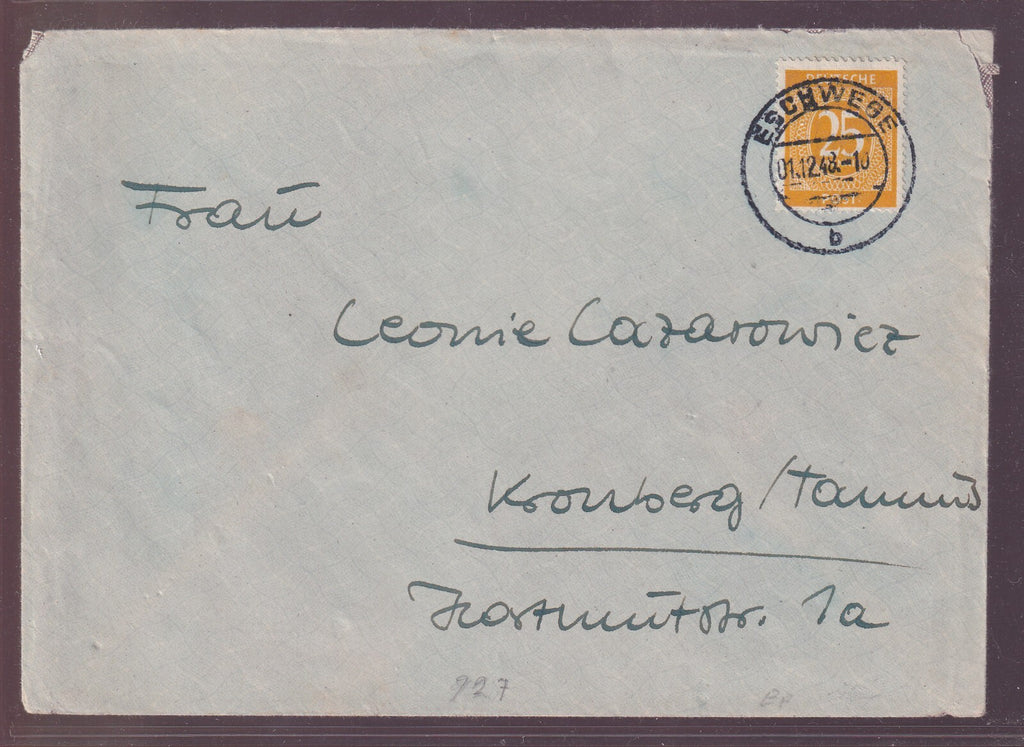 DEUTSCHE
25
POST
ESCHWEGE
01.12.48.-10
b
Frau
Leonie Lazarowicz
Kronberg/Taunus
Hartmutstr. 1a
927